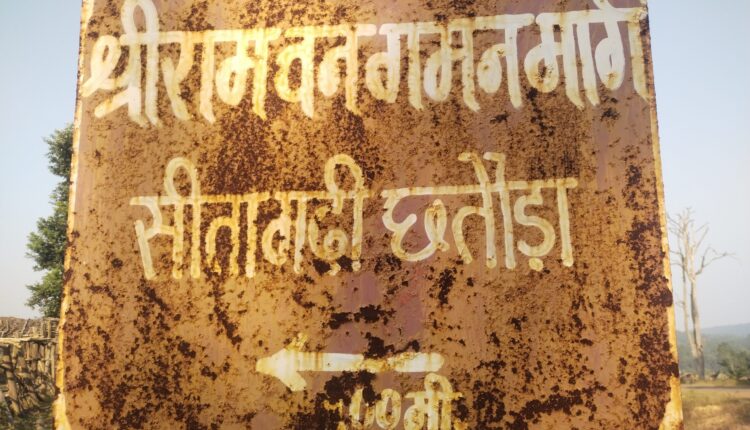 श्रीरामवनगमनमार्ग
सीताबाढ़ी छतौड़ा